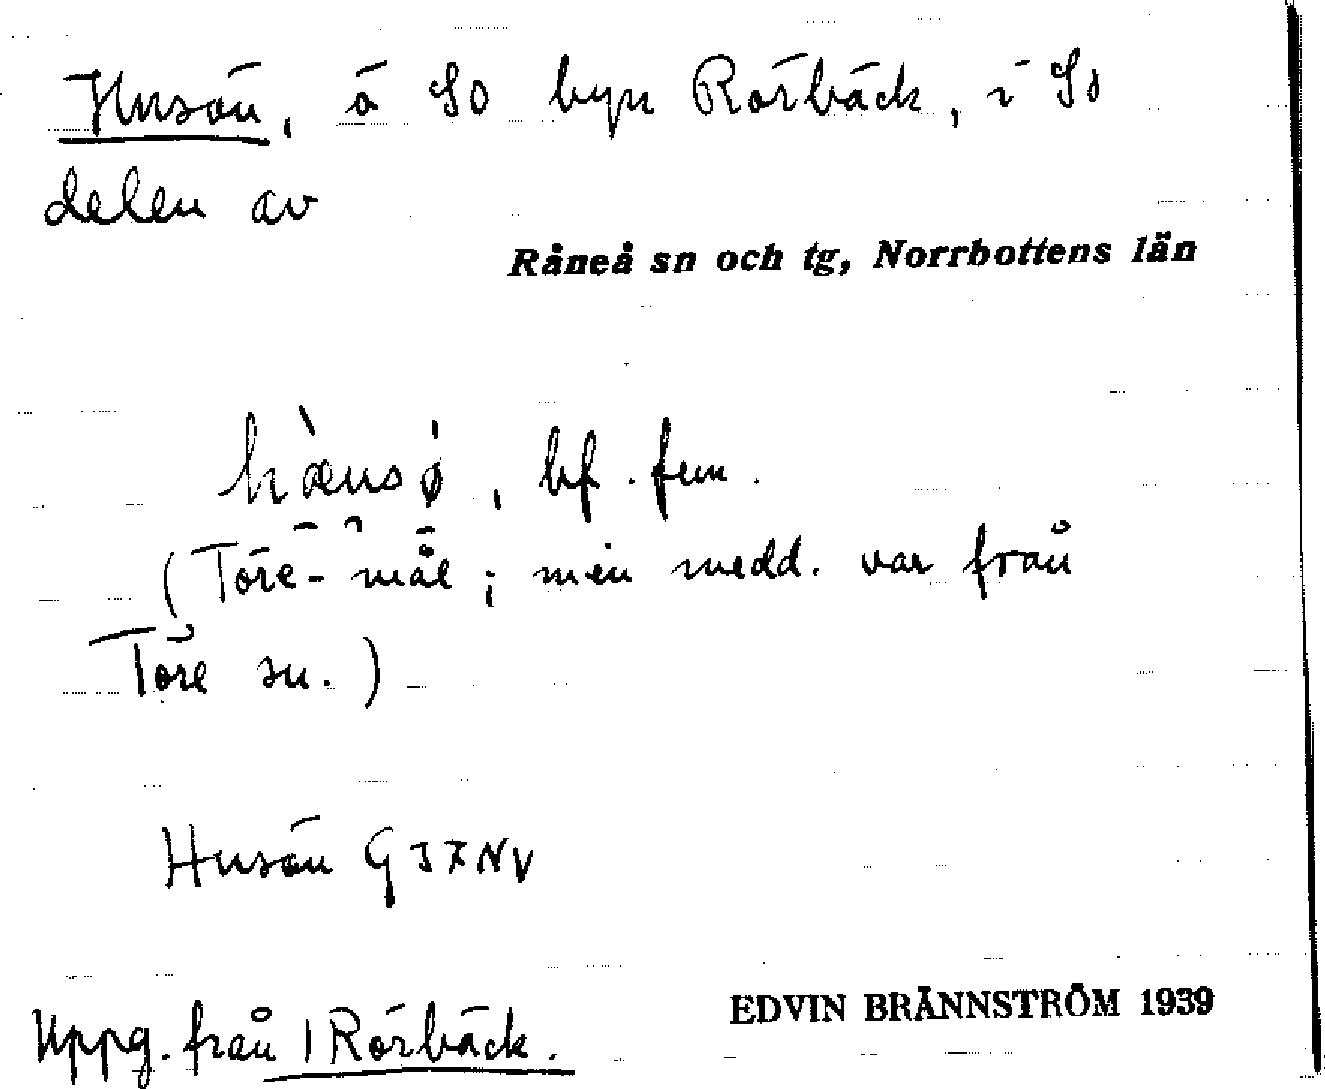 Husön, ö SO byn Rörbäck, i SO
delen av
Råneå sn och tg, Norrbottens län
hæ̀usǿ, bf. fem.
(Töre-mål; min medd. var från
Töre sn.)
Husön GJXNV
Uppg. från 1 Rörbäck.
EDVIN BRÄNNSTRÖM 1939